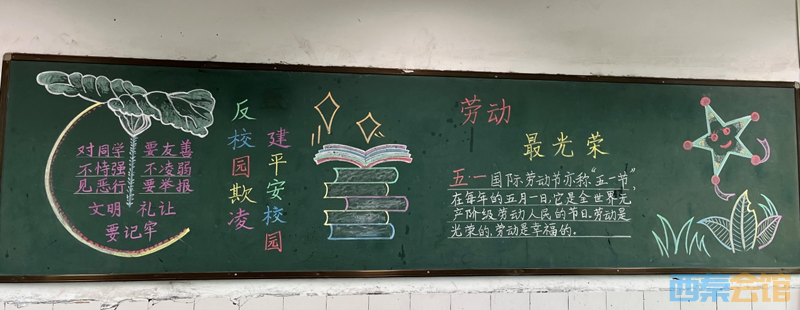 对同学 要友善
不恃强 不凌弱
见恶行 要举报
文明 礼让
要记牢
反校园欺凌
建平安校园
劳动
最光荣
五·一国际劳动节亦称“五一节”,
在每年的五月一日,它是全世界无
产阶级劳动人民的节日.劳动是
光荣的,劳动是幸福的.
西秦会馆